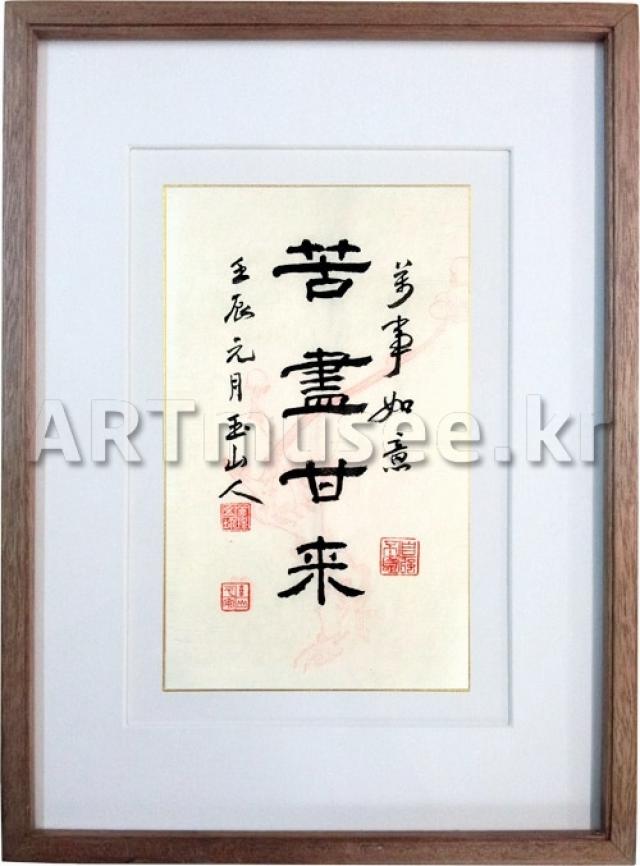 萬事如意
苦盡甘来
壬辰元月玉山人
ARTmusee.kr